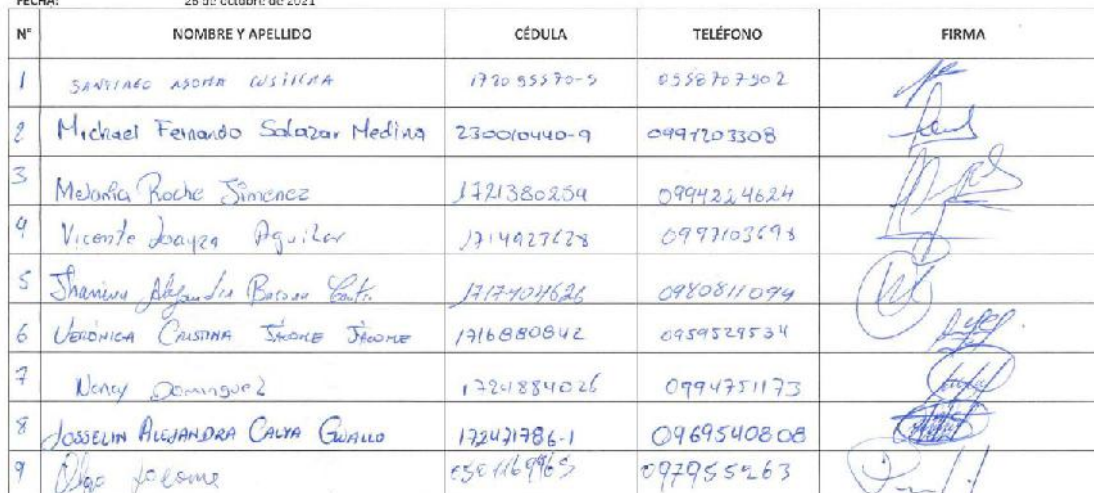 FECHA: 26 de octubre de 2021
N° NOMBRE Y APELLIDO CÉDULA TELÉFONO FIRMA
1 SANTIAGO 172095570-5 0958707902
2 Michael Fernando Salazar Medina 230010440-9 0997203308
3 Melania Roche Jimenez 1721380259 0994224624
4 Vicente Loayza Aguilar 1714923628 0997103698
5 1717404626 0980811094
6 VERÓNICA CRISTINA JÁCOME JÁCOME 1716880842 0959529534
7 Nancy Dominguez 1724884026 0994751173
8 JOSSELIN ALEJANDRA CALVA GUALLO 172471786-1 0969540808
9 Olga Jacome 097955263